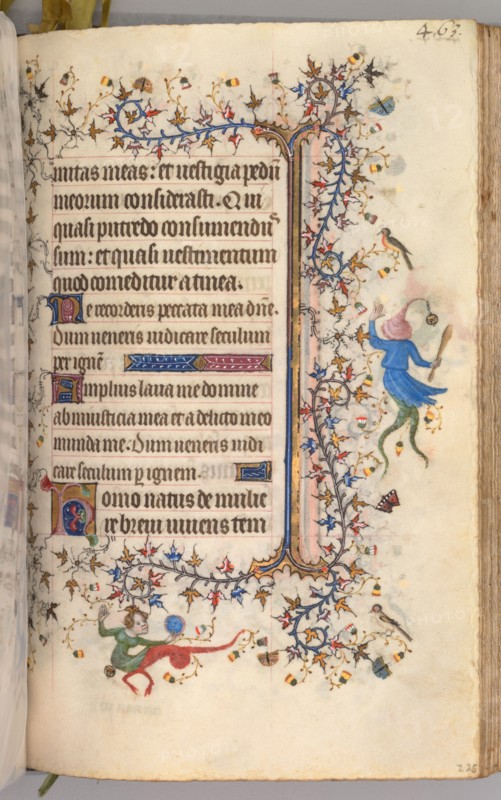 463.
mitas meas: et uestigia pedū
meorum considerasti. Qui
quasi putredo consumendus
sum: et quasi uestimentum
quod comeditur a tinea.
Ne recorderis peccata mea dn̄e.
Dum ueneris iudicare seculum
per ignē
Amplius laua me domine
ab iniusticia mea et a delicto meo
munda me. Dum ueneris iudi
care seculum p ignem.
Homo natus de mulie
re breui uiuens tem
226